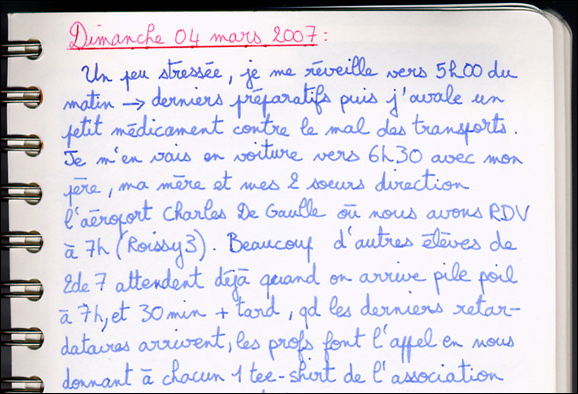 Dimanche 04 mars 2007 :
Un peu stressée, je me réveille vers 5h00 du
matin → derniers préparatifs puis j'avale un
petit médicament contre le mal des transports.
Je m'en vais en voiture vers 6h30 avec mon
père, ma mère et mes 2 soeurs direction
l'aéroport Charles De Gaulle où nous avons RDV
à 7h (Roissy3). Beaucoup d'autres élèves de
2de 7 attendent déjà quand on arrive pile poil
à 7h, et 30 min + tard, qd les derniers retar-
dataires arrivent, les profs font l'appel en nous
donnant à chacun 1 tee-shirt de l'association